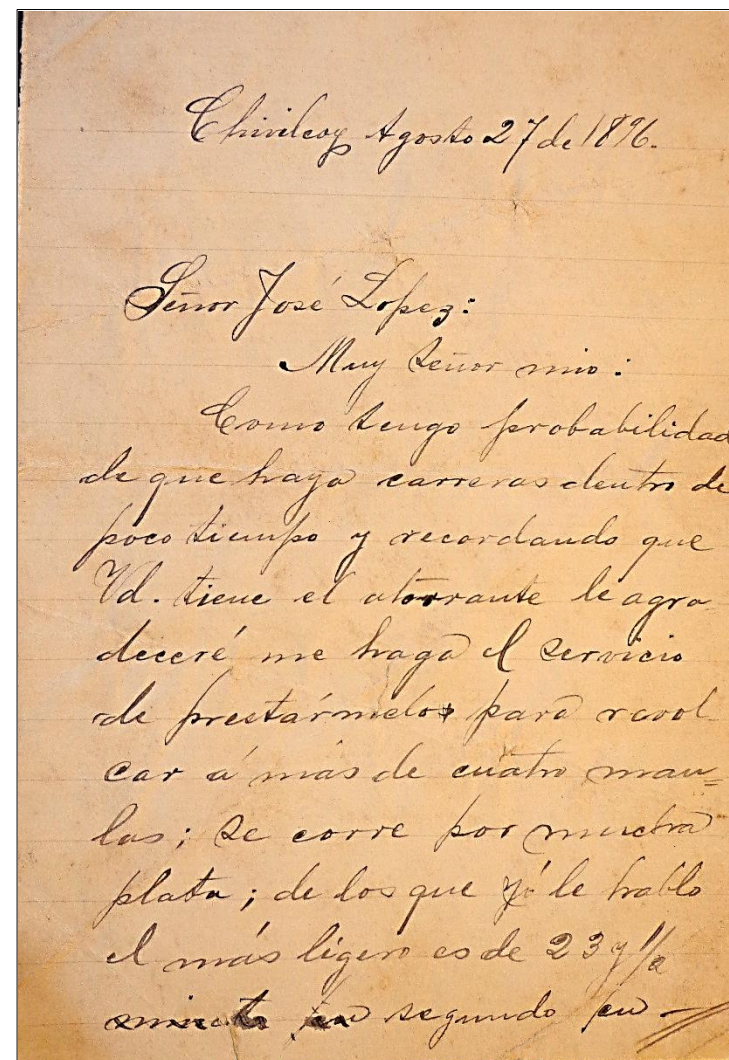 Chivilcoy Agosto 27 de 1896.
Señor José Lopez:
Muy señor mio:
Como tengo probabilidad
de que haya carreras dentro de
poco tiempo y recordando que
Vd. tiene el atorrante le agra
deceré me haga el servicio
de prestármelo para revol
car á más de cuatro mau=
las; se corre por mucha
plata; de los que yó le hablo
el más ligero es de 23 y 1/2
segundo en